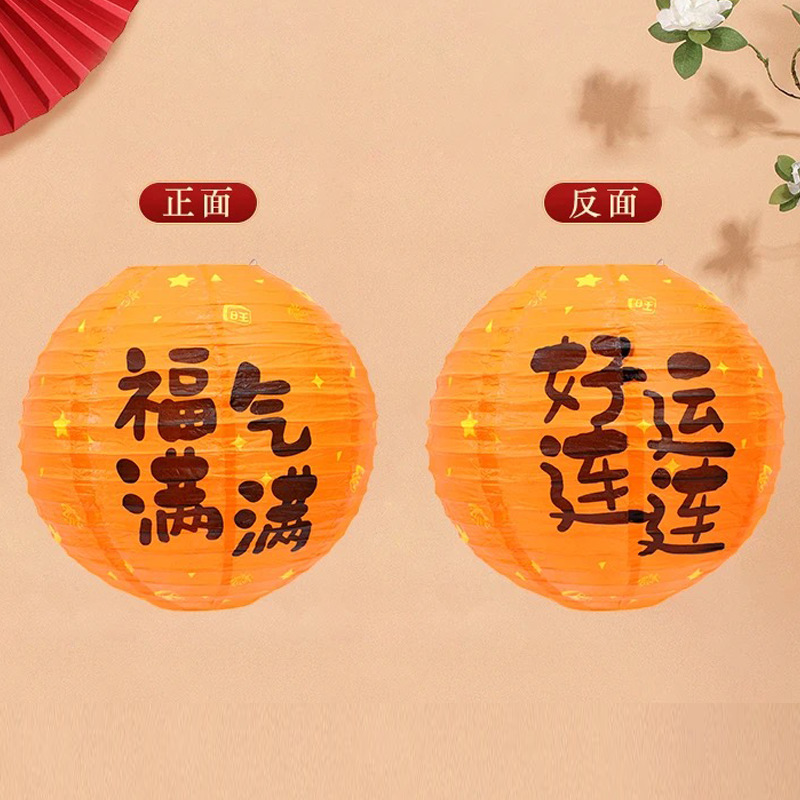 正面
反面
旺
福气
满满
旺
好运
连连